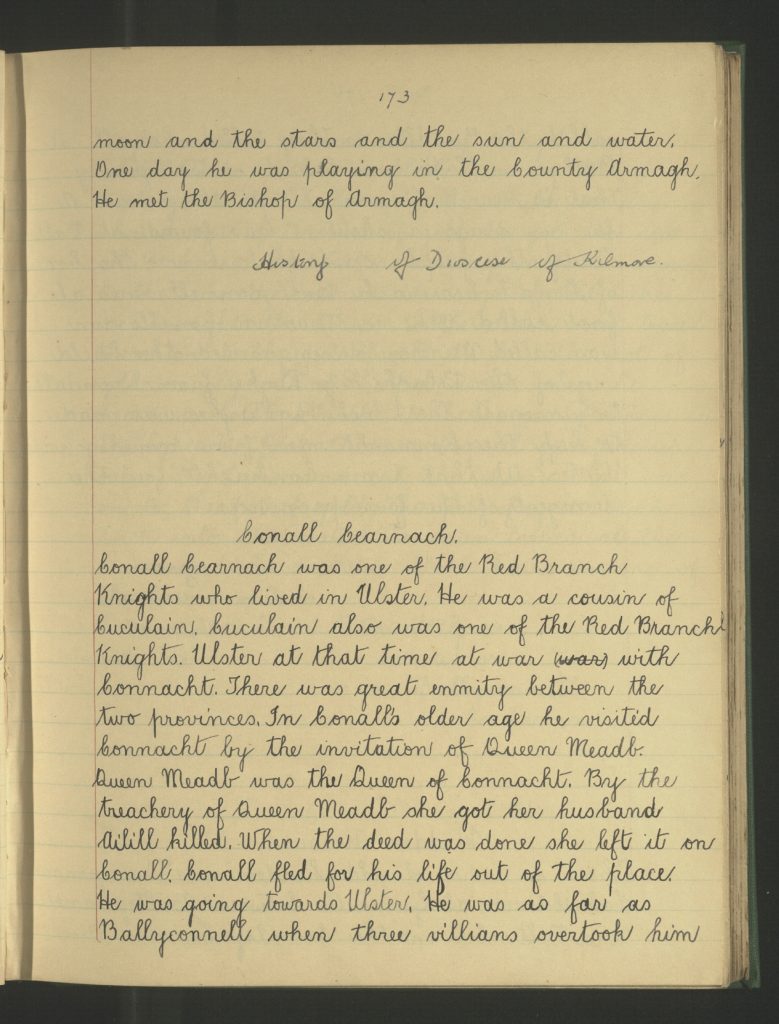 173
moon and the stars and the sun and water.
One day he was playing in the County Armagh.
He met the Bishop of Armagh.
History of Dioscese of Kilmore.
Conall Cearnach.
Conall Cearnach was one of the Red Branch
Knights who lived in Ulster. He was a cousin of
Cuculain. Cuculain also was one of the Red Branch
Knights. Ulster at that time at war (war) with
Connacht. There was great enmity between the
two provinces. In Conall's older age he visited
Connacht by the invitation of Queen Meadb.
Queen Meadb was the Queen of Connacht. By the
treachery of Queen Meadb she got her husband
Ailill killed. When the deed was done she left it on
Conall. Conall fled for his life out of the place.
He was going towards Ulster. He was as far as
Ballyconnell when three villians overtook him